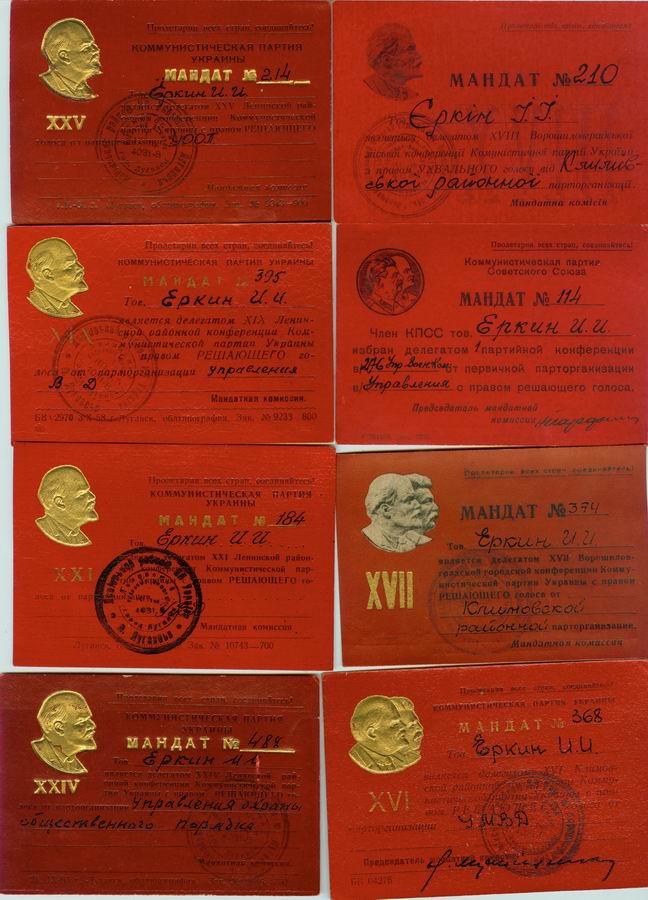 Пролетарии всех стран, соединяйтесь!
КОММУНИСТИЧЕСКАЯ ПАРТИЯ
УКРАИНЫ
МАНДАТ № 214
Тов. Еркин И.И.
XXV
является делегатом XXV Ленинской рай-
онной конференции Коммунистической
партии Украины с правом РЕШАЮЩЕГО
голоса от парторганизации УООП
Мандатная комиссия
МАНДАТ № 210
Тов. Єркін І.І.
являється делегатом XVIII Ворошиловградської
міської конференції Комуністичної партії України
з правом УХВАЛЬНОГО голосу від Климів-
ської районної парторганізації.
Мандатна комісія
Пролетарии всех стран, соединяйтесь!
КОММУНИСТИЧЕСКАЯ ПАРТИЯ УКРАИНЫ
МАНДАТ № 395
Тов. Еркин И.И.
является делегатом XIX Ленин-
ской районной конференции Ком-
мунистической партии Украины
с правом РЕШАЮЩЕГО го-
лоса от парторганизации управления
В Д
Мандатная комиссия.
БВ 2970 3-X-58 г. Луганск, облтипография. Зак. № 9233 800
Пролетарии всех стран, соединяйтесь!
Коммунистическая партия
Советского Союза
МАНДАТ № 114
Член КПСС тов. Еркин И.И.
избран делегатом 1 партийной конференции
в/ 276 Упр. Воен. Ком. от первичной парторганизации
в/ Управления с правом решающего голоса.
Председатель мандатной
комиссии
Пролетарии всех стран, соединяйтесь!
КОММУНИСТИЧЕСКАЯ ПАРТИЯ
УКРАИНЫ
МАНДАТ № 184
Тов. Еркин И.И.
XXI
является делегатом XXI Ленинской район-
ной конференции Коммунистической пар-
тии Украины с правом РЕШАЮЩЕГО го-
лоса от парторганизации
Мандатная комиссия
Луганск, Зак. № 10743—700
Пролетарии всех стран, соединяйтесь!
МАНДАТ № 374
Тов. Еркин И.И.
XVII
является делегатом XVII Ворошилов-
градской городской конференции Комму-
нистической партии Украины с правом
РЕШАЮЩЕГО голоса от
Климовской
районной парторганизации.
Мандатная комиссия
Пролетарии всех стран, соединяйтесь!
КОММУНИСТИЧЕСКАЯ ПАРТИЯ
УКРАИНЫ
МАНДАТ № 488
Тов. Еркин И.И.
XXIV
является делегатом XXIV Ленинской рай-
онной конференции Коммунистической партии
Украины с правом РЕШАЮЩЕГО го-
лоса от парторганизации Управления охраны
общественного порядка
Мандатная комиссия
Пролетарии всех стран, соединяйтесь!
КОММУНИСТИЧЕСКАЯ ПАРТИЯ УКРАИНЫ
МАНДАТ № 368
Тов. Еркин И.И.
XVI
является делегатом XVI Климов-
парторганизации УМВД
Председатель мандатной комиссии
БВ 04276